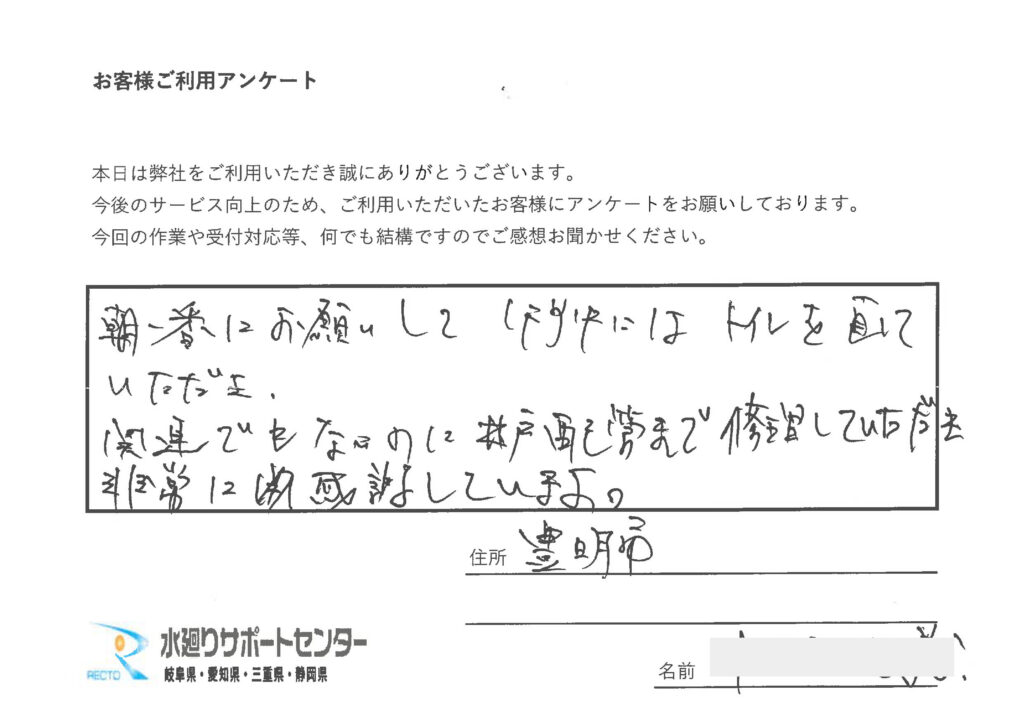 お客様ご利用アンケート
本日は弊社をご利用いただき誠にありがとうございます。
今後のサービス向上のため、ご利用いただいたお客様にアンケートをお願いしております。
今回の作業や受付対応等、何でも結構ですのでご感想お聞かせください。
朝一番にお願いして 午前中には トイレを直して
いただき、
関連でもないのに井戸配管まで修理していただき
非常に 感謝しています。
住所 豊明市
RECTO
水廻りサポートセンター
岐阜県・愛知県・三重県・静岡県
名前